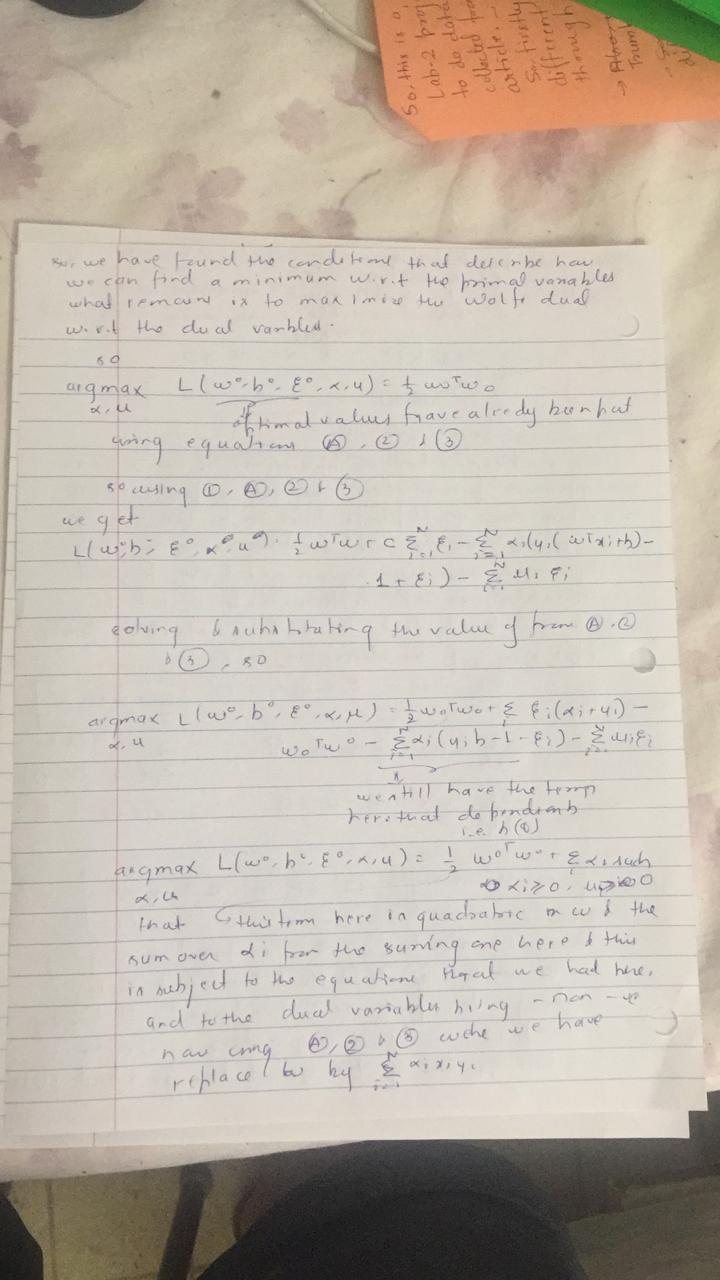 So, this is a
Lab-2 proj
to do data
collected fro
article.
So, firstly
different
though
→
Trum
so, we have found the conditions that describe how
we can find a minimum w.r.t the primal variables
what remains is to maximize the Wolfe dual
w.r.t the dual varibles.
so
argmax L(w°, b°, ξ°, α, u) = ½ w₀ᵀw₀
α, u
optimal values have already been put
using equations Ⓐ, ② & ③
so using ①, Ⓐ, ② & ③
we get
L(w°, b°, ξ°, α°, u°) = ½ wᵀw + C Σᵢ₌₁ᴺ ξᵢ - Σᵢ₌₁ᴺ αᵢ(yᵢ(wᵀxᵢ+b) -
1 + ξᵢ) - Σᵢᴺ uᵢ ξᵢ
solving & substitating the value of from Ⓐ, ②
& ③, so
argmax L(w°, b°, ξ°, α, μ) = ½ w₀ᵀw₀ + Σᵢ ξᵢ(αᵢ + uᵢ) -
α, u
w₀ᵀw° - Σᵢ₌₁ᴺ αᵢ(yᵢb - 1 - ξᵢ) - Σᵢ₌₁ᴺ uᵢξᵢ
we still have the term
here that depends on b
i.e. b(0)
argmax L(w°, b°, ξ°, α, u) = ½ w°ᵀw° + Σ αᵢ such
α, u
αᵢ ≥ 0, u ≥ 0
that this term here in quadratic in w & the
sum over αᵢ from the suming one here & this
is subject to the equations that we had here,
and to the dual variables being - non -ve
now using Ⓐ, ② & ③ we have
replace w by Σᵢ₌₁ᴺ αᵢ xᵢ yᵢ